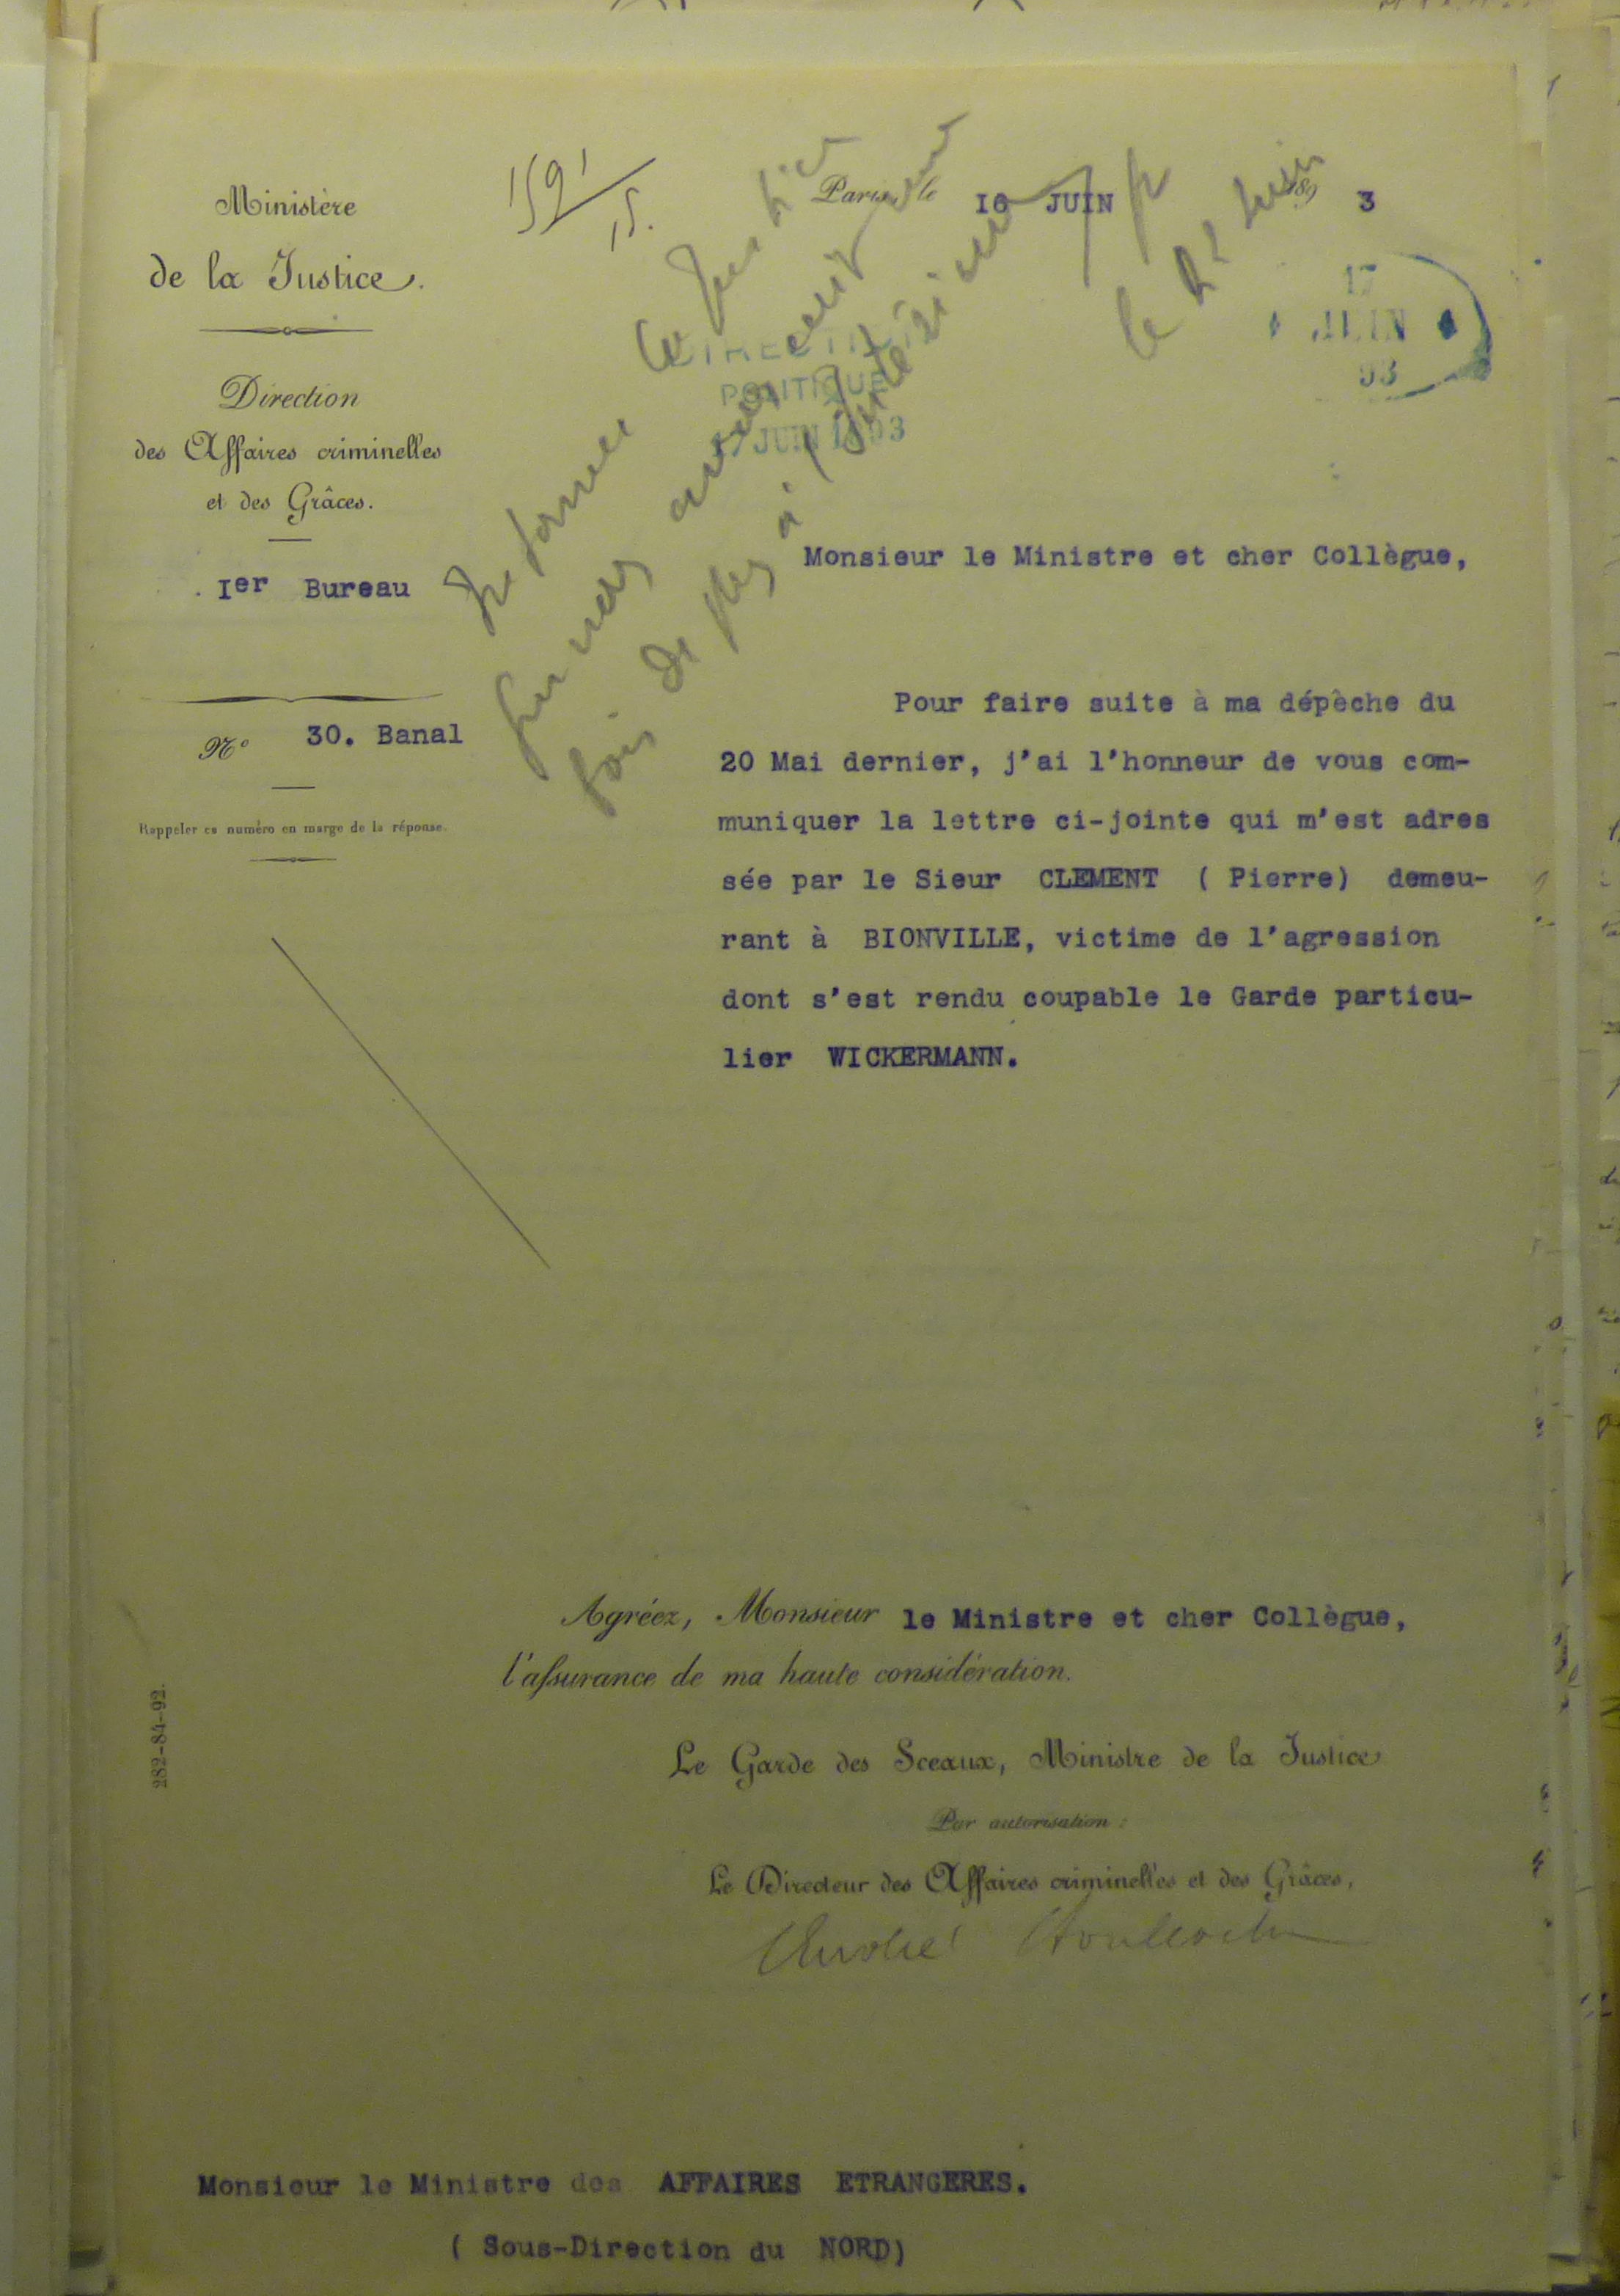 Ministère
de la Justice.
Direction
des Affaires criminelles
et des Grâces.
Ier Bureau
N° 30. Banal
Rappeler ce numéro en marge de la réponse.
1591
15.
Paris, le 16 JUIN 189 3
17
JUIN
93
DIRECTION
POLITIQUE
17 JUIN 1893
Informer la Justice
que nous avons écrit une
fois de plus à l'
le 21 Juin
Monsieur le Ministre et cher Collègue,
Pour faire suite à ma dépèche du
20 Mai dernier, j'ai l'honneur de vous com-
muniquer la lettre ci-jointe qui m'est adres
sée par le Sieur CLEMENT ( Pierre) demeu-
rant à BIONVILLE, victime de l'agression
dont s'est rendu coupable le Garde particu-
lier WICKERMANN.
Agréez, Monsieur le Ministre et cher Collègue,
l'assurance de ma haute considération.
Le Garde des Sceaux, Ministre de la Justice
Par autorisation :
Le Directeur des Affaires criminelles et des Grâces,
282-84-92.
Monsieur le Ministre des AFFAIRES ETRANGERES.
( Sous-Direction du NORD)